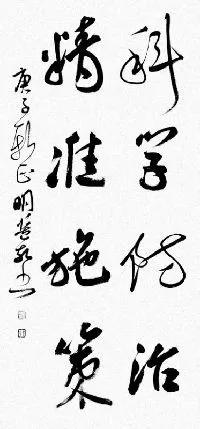 科学防治
精准施策
庚子新正明哲书